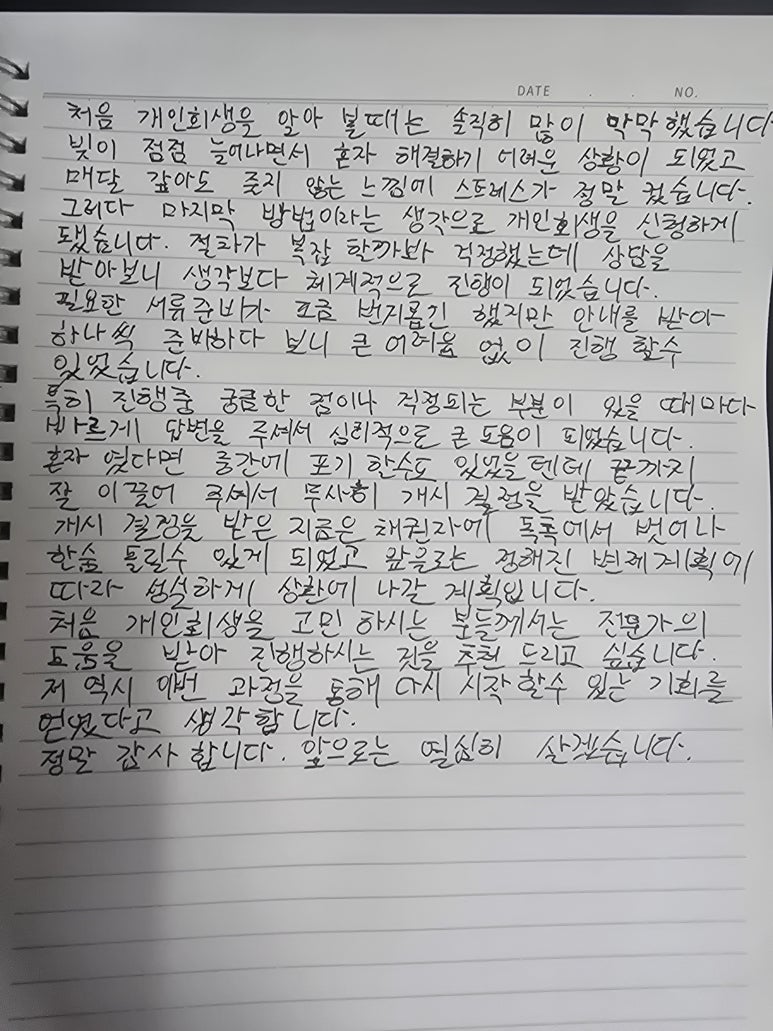 DATE . . NO.
처음 개인회생을 알아 볼때는 솔직히 많이 막막했습니다
빚이 점점 늘어나면서 혼자 해결하기 어려운 상황이 되었고
매달 갚아도 줄지 않는 느낌에 스트레스가 정말 컸습니다.
그러다 마지막 방법이라는 생각으로 개인회생을 신청하게
됐습니다. 절차가 복잡 할까봐 걱정했는데 상담을
받아보니 생각보다 체계적으로 진행이 되었습니다.
필요한 서류준비가 조금 번거롭긴 했지만 안내를 받아
하나씩 준비하다 보니 큰 어려움 없이 진행 할수
있었습니다.
특히 진행중 궁금한 점이나 걱정되는 부분이 있을 때마다
빠르게 답변을 주셔서 심리적으로 큰 도움이 되었습니다.
혼자 였다면 중간에 포기 할수도 있었을텐데 끝까지
잘 이끌어 주셔서 무사히 개시 결정을 받았습니다.
개시 결정을 받은 지금은 채권자에 독촉에서 벗어나
한숨 돌릴수 있게 되었고 앞으로는 정해진 변제계획에
따라 성실하게 상환에 나갈 계획입니다.
처음 개인회생을 고민 하시는 분들께서는 전문가의
도움을 받아 진행하시는 것을 추천 드리고 싶습니다.
저 역시 이번 과정을 통해 다시 시작 할수 있는 기회를
얻었다고 생각합니다.
정말 감사 합니다. 앞으로는 열심히 살겠습니다.